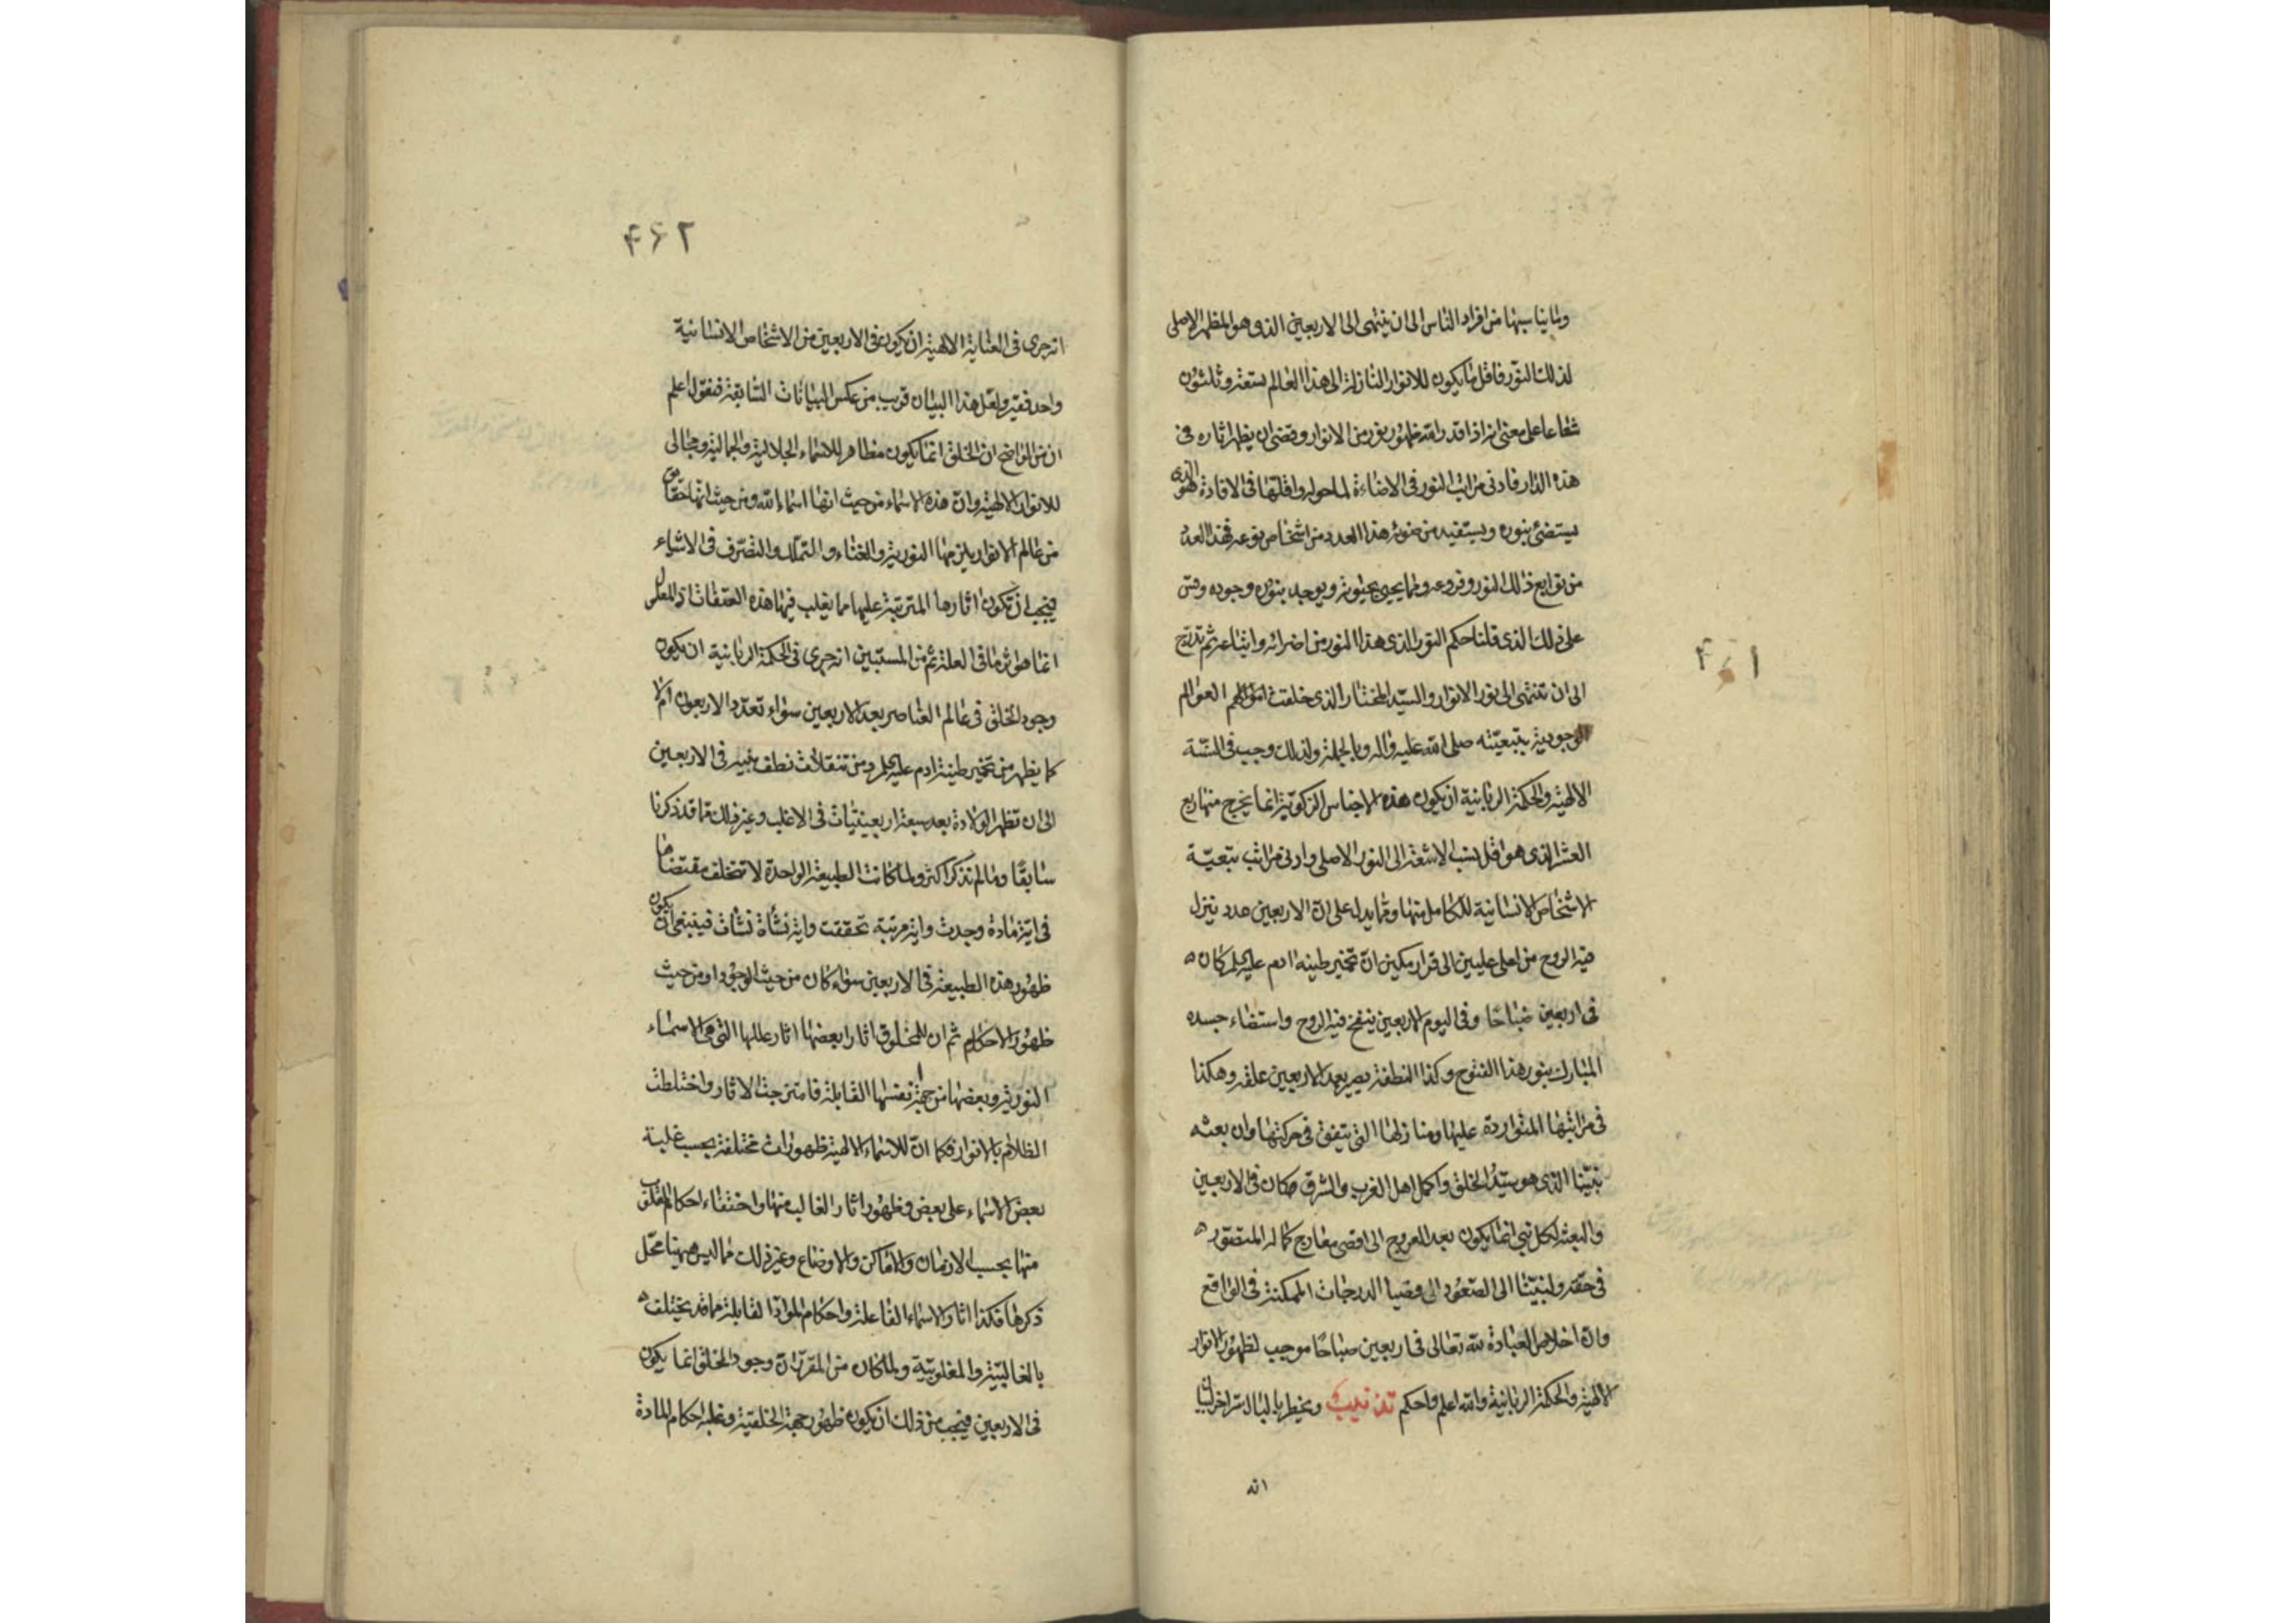 ۴۶۱
وما يناسبها من افراد الناس الى ان ينتهى الى الاربعين الذى هو المظهر الاصلى
لذلك النور فاقل ما يكون للانوار النازلة الى هذا العالم تسعة وثلثون
شعاعا على معنى انه اذا قدر الله ظهور نور من الانوار وقضى ان يظهر اثاره فى
هذه الدار فادنى مراتب النور فى الاضاءة لما حوله واقلتها فى الافادة
يستضئ بنوره ويستفيد من ضوئه هذا العدد من اشخاص نوعه فهذا العدد
من توابع ذلك النور وفروعه ومما يحيى بحيوته ويوجد بنوره وجوده وقس
على ذلك الذى قلنا حكم النور الذى هذا النور من اضرائه واتباعه ثم تدرج
الى ان تنتهى الى نور الانوار والسيد المختار الذى خلقت العوالم
الوجودية بتبعيته صلى الله عليه واله وبالجملة ولذلك وجب فى السنة
الالهية والحكمة الربانية ان يكون هذه الاجناس الزكوية انما يخرج منها ربع
العشر الذى هو اقل نسب الاشعة الى النور الاصلى وادنى مراتب تبعية
الاشخاص الانسانية للكامل منها ومما يدل على ان الاربعين عدد ينزل
فيه الروح من اعلى عليين الى قرار مكين ان تخمير طينة ادم عليه السلم كان
فى اربعين صباحا وفى اليوم الاربعين ينفخ فيه الروح واستضاء جسده
المبارك بنور هذا الفتوح وكذا النطفة يصير بعد الاربعين علقة وهكذا
فى مراتبها المتواردة عليها ومنازلها التى يتفق فى حركتها وان بعثه
نبينا الذى هو سيد الخلق واكمل اهل الغرب والشرق كان فى الاربعين
والبعثة لكل نبى انما يكون بعد العروج الى اقصى معارج كماله المتصور
فى حقه ولنبينا الى الصعود الى قصيا الدرجات الممكنة فى الواقع
وان اخلاص العبادة لله تعالى فى اربعين صباحا موجب لظهور الانوار
الالهية والحكمة الربانية والله اعلم واحكم تذنيب ويخطر بالبال سر اخر
انه
۴۶۲
انه جرى فى العناية الالهية ان يكون فى الاربعين من الاشخاص الانسانية
واحد فقيه ولعل هذا البيان قريب من عكس البيانات السابقة فنقول اعلم
ان من الواضح ان الخلق انما يكون مظاهر للاسماء الجلالية والجمالية ومجالى
للانوار الالهية وان هذه الاسماء من حيث انها اسماء الله ومن حيث انها حقايق
من عالم الانوار يلزمها النورية والغناء والتملك والتصرف فى الاشياء
فيجب ان تكون اثارها المترتبة عليها مما يغلب فيها هذه الصفات اذ المعلول
انما هو اثر ما فى العلة ثم من المستبين انه جرى فى الحكمة الربانية ان يكون
وجود الخلق فى عالم العناصر بعد الاربعين سواء تعدد الاربعون ام لا
كما يظهر من تخمير طينة ادم عليه السلم ومن تنقلات نطف بنيه فى الاربعين
الى ان تظهر الولادة بعد سبعة اربعينيات فى الاغلب وغير ذلك مما قد ذكرنا
سابقا وما لم نذكر اكثر ولما كانت الطبيعة الواحدة لا تتخلف مقتضاها
فى اية مادة وجدت واية مرتبة تحققت واية نشاة نشات فينبغى ان يكون
ظهور هذه الطبيعة فى الاربعين سواء كان من حيث الوجود او من حيث
ظهور الاحكام ثم ان للمخلوق اثارا بعضها اثار عللها التى هى الاسماء
النورية وبعضها من جهة نفسها القابلة فامتزجت الاثار واختلطت
الظلام بالانوار فكما ان للاسماء الالهية ظهورات مختلفة بحسب غلبة
بعض الاسماء على بعض وظهور اثار الغالب منها واختفاء احكام المغلوب
منها بحسب الازمان والاماكن والاوضاع وغير ذلك مما ليس ههنا محل
ذكرها فكذا اثار الاسماء الفاعلة واحكام المواد القابلة مما قد يختلف
بالغالبية والمغلوبية ولما كان من المقرر ان وجود الخلق انما يكون
فى الاربعين فيجب من ذلك ان يكون ظهور جهة الخلقية وغلبة احكام المادة